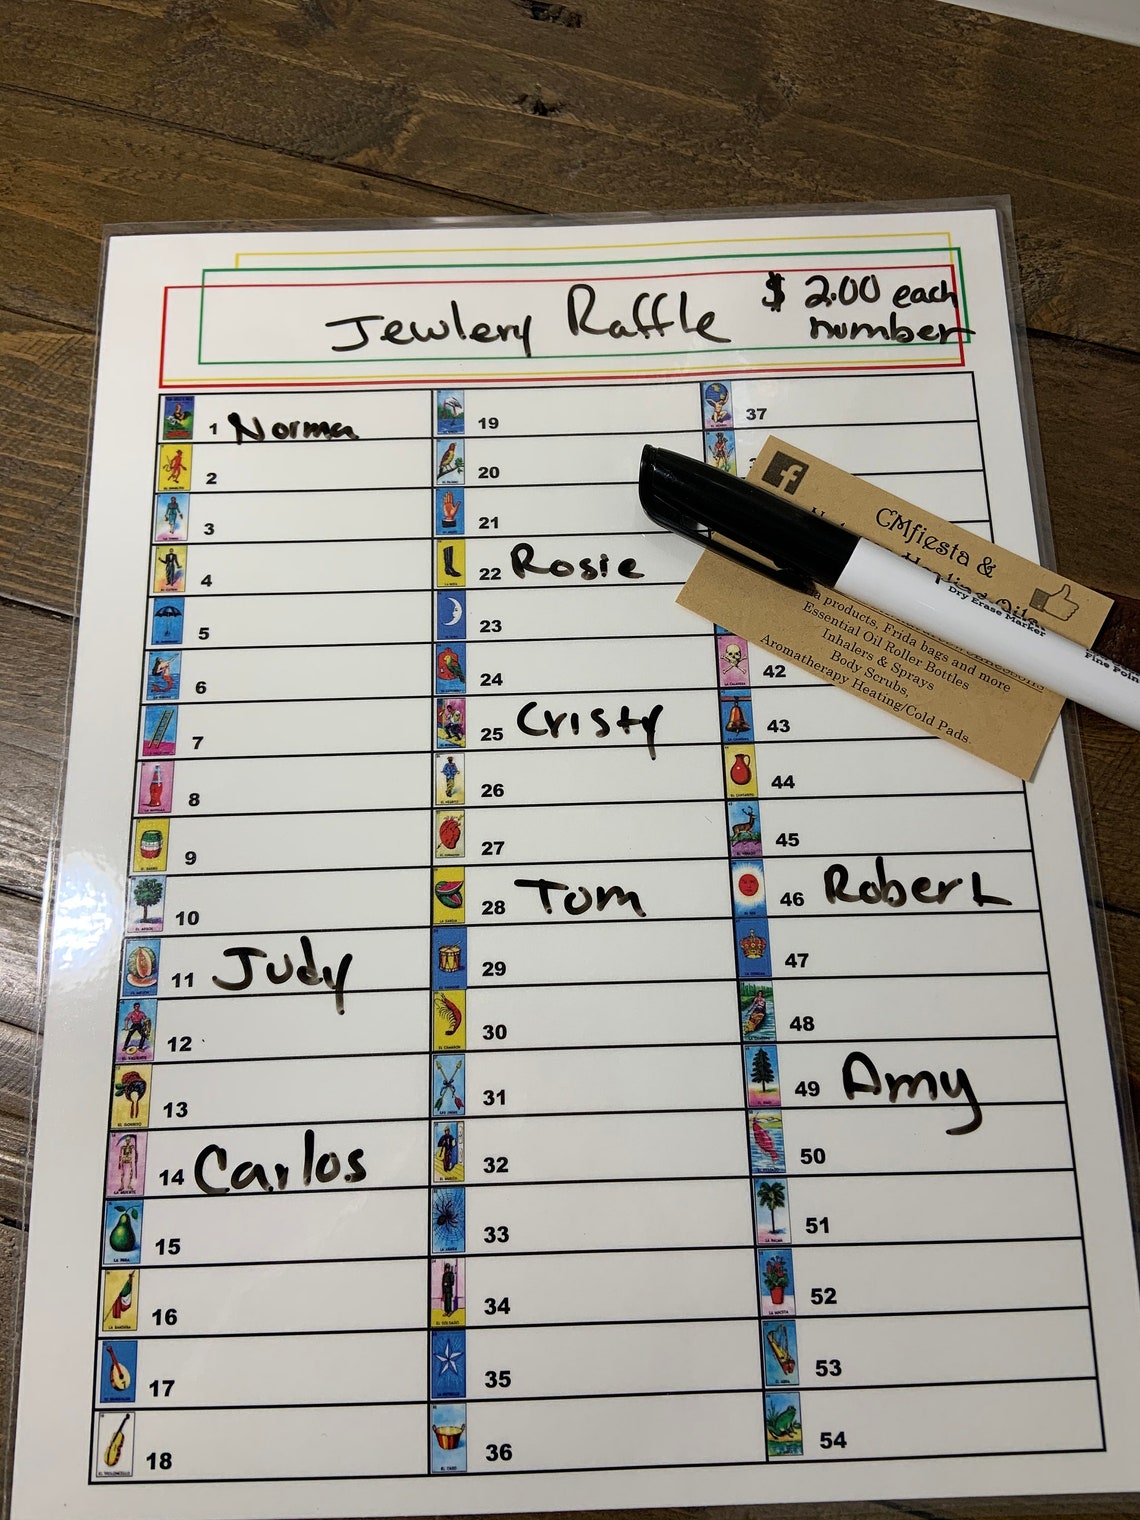 Jewlery Raffle
$ 2.00 each
number
1 Norma
2
3
4
5
6
7
8
9
10
11 Judy
12
13
14 Carlos
15
16
17
18
19
20
21
22 Rosie
23
24
25 Cristy
26
27
28 Tom
29
30
31
32
33
34
35
36
37
42
43
44
45
46 Robert
47
48
49 Amy
50
51
52
53
54
f
CMfiesta &
products, Frida bags and more
Essential Oil Roller Bottles
Inhalers & Sprays
Body Scrubs,
Aromatherapy Heating/Cold Pads.
Dry Erase Marker
Fine Poin